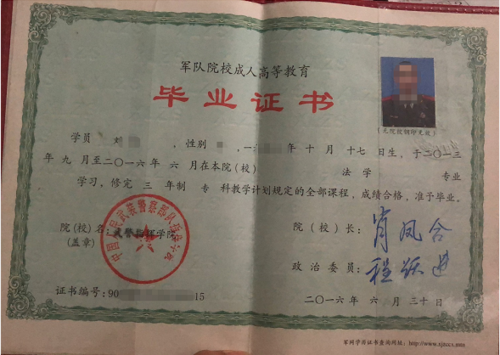 军队院校成人高等教育
毕业证书
学员 刘 ，性别 ，一 年十月十七日生，于二〇一三
年九月至二〇一六年六月在本院(校) 法学 专业
学习，修完三年制专科教学计划规定的全部课程，成绩合格，准予毕业。
(无院校钢印无效)
院(校)名：武警 学院
(盖章)
院(校)长：肖凤合
政治委员：程跃进
证书编号：90 15
二〇一六年六月三十日